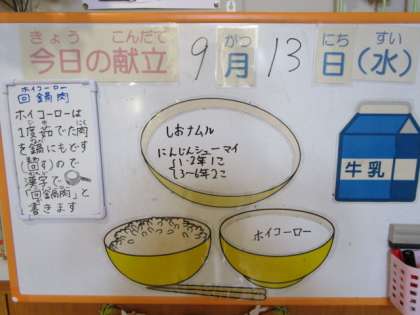 きょう こんだて がつ にち すい
今日の献立 9月13日(水)
ホイコーロー
回鍋肉
ホイコーローは
1度茹でた肉
を鍋にもどす
(回す)ので
漢字で
「回鍋肉」と
書きます
しおナムル
にんじんシューマイ
1・2年1こ
3〜6年2こ
牛乳
ホイコーロー